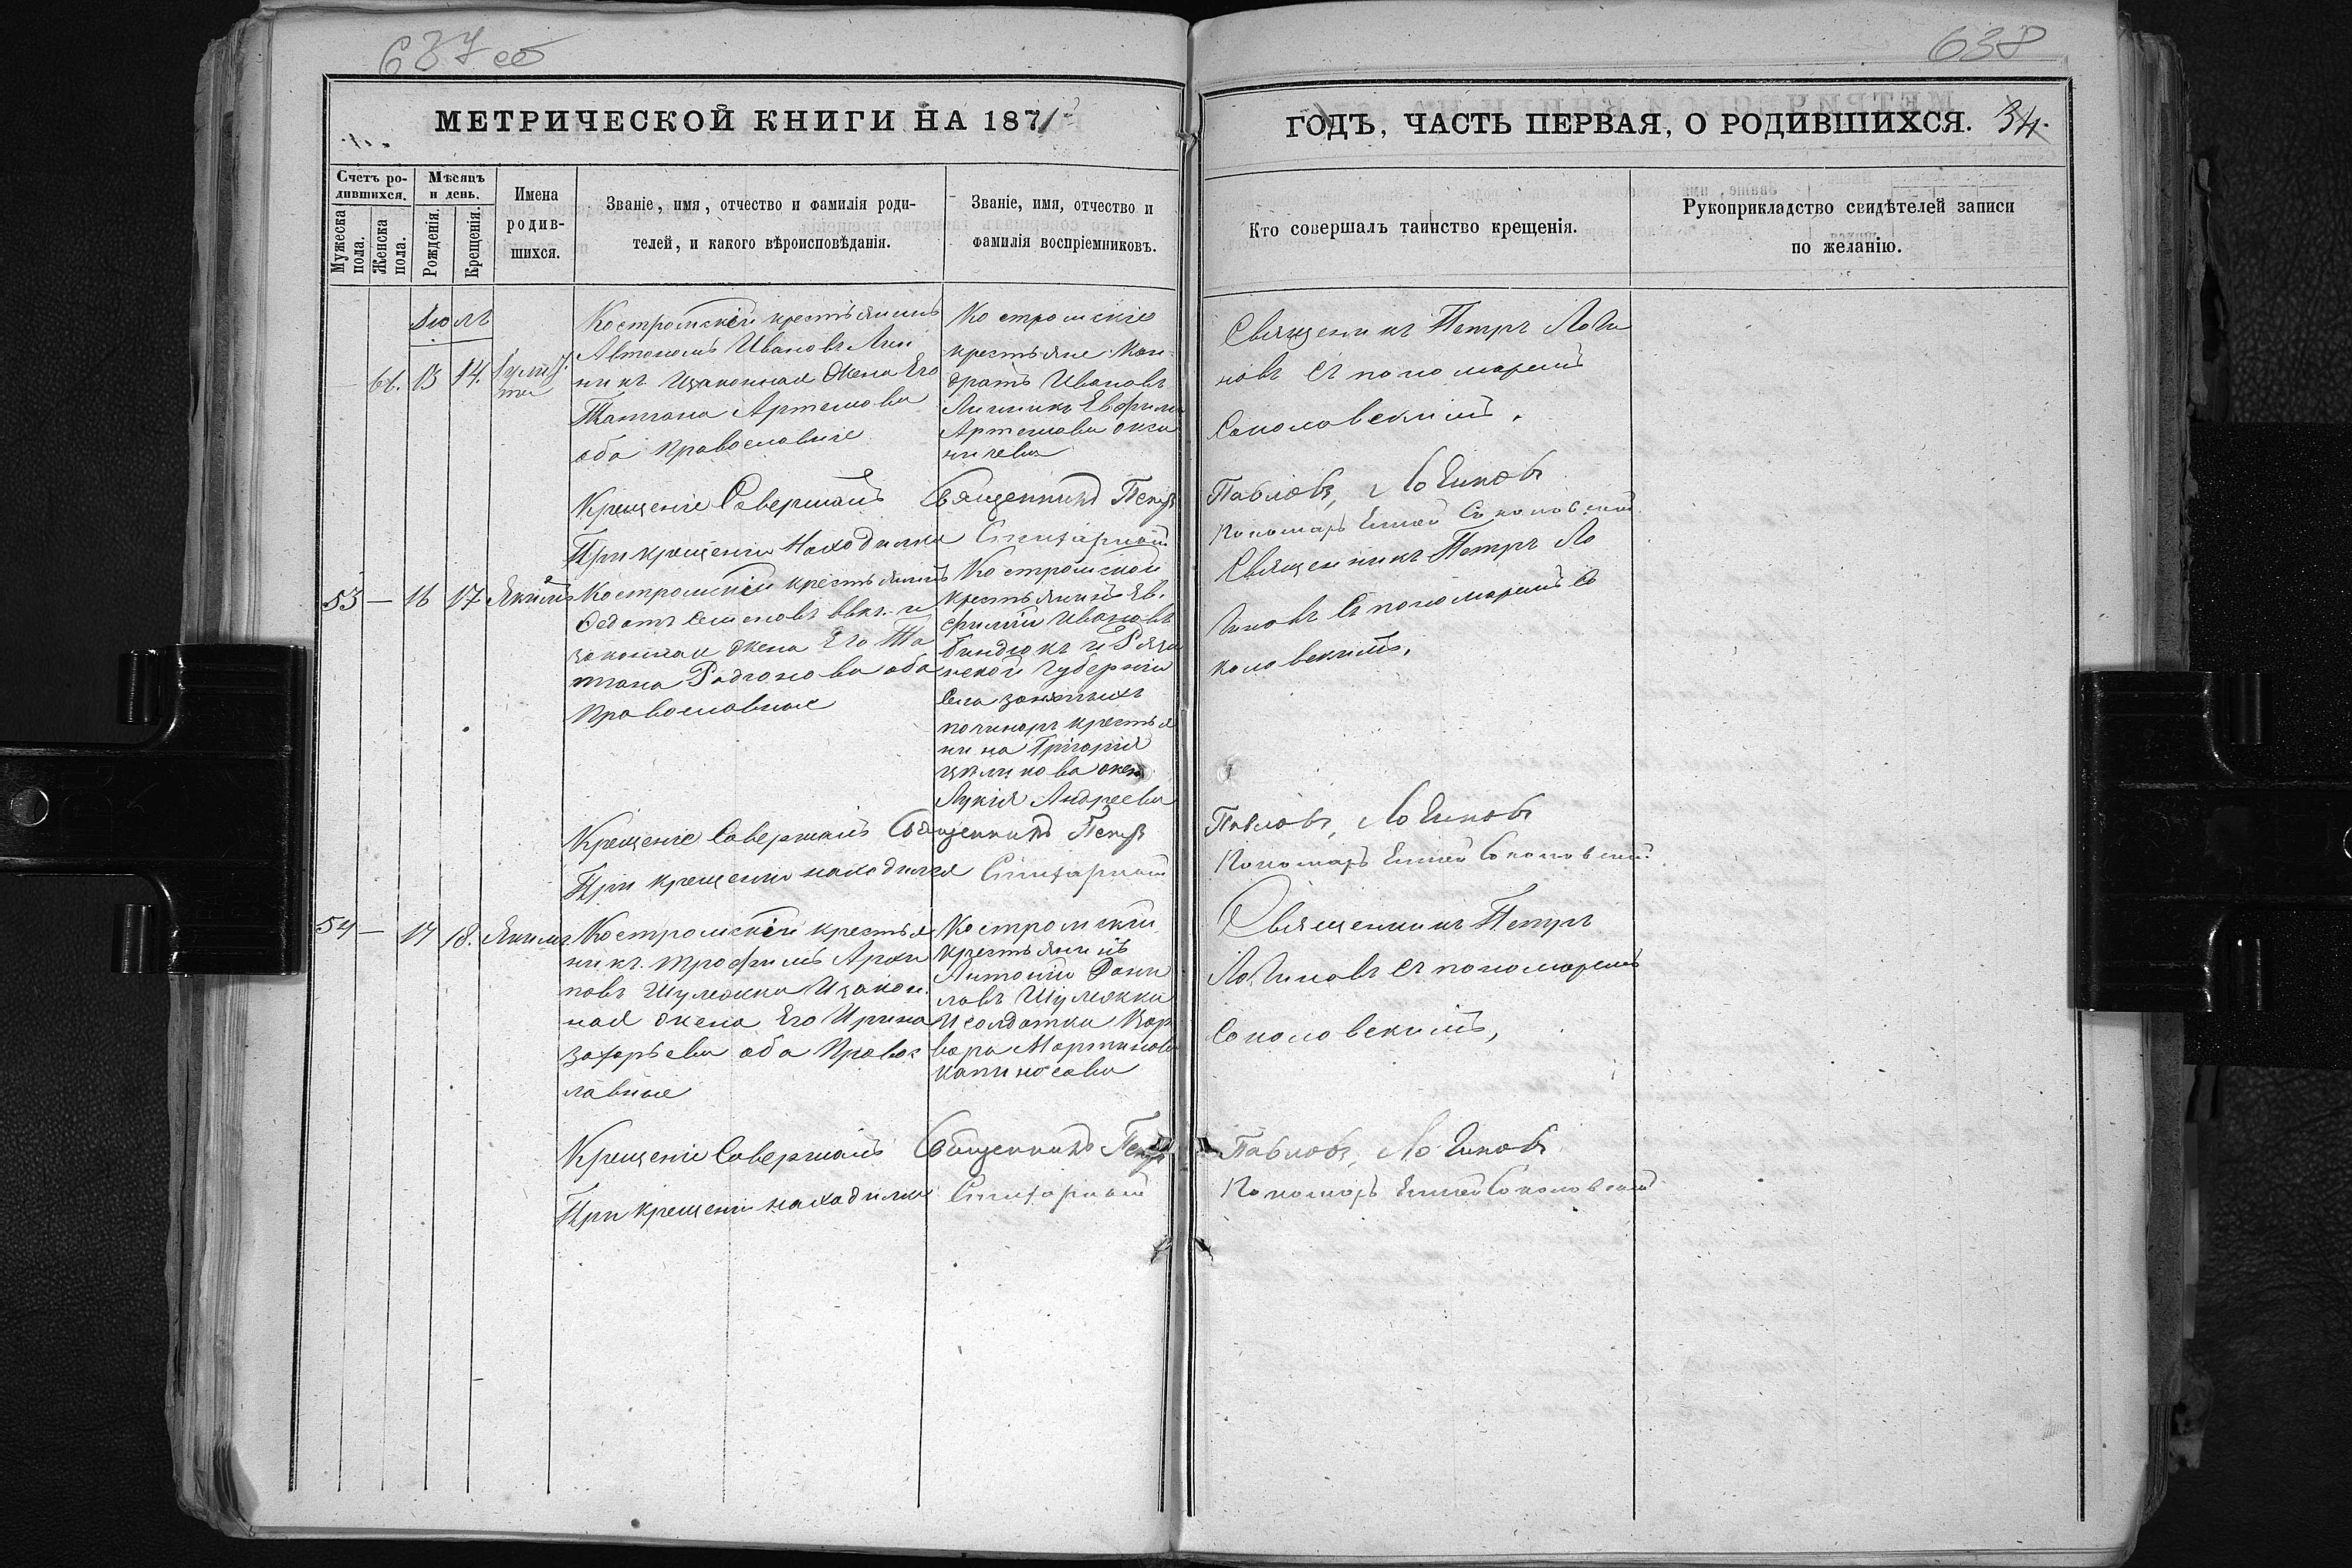 637 об
638
МЕТРИЧЕСКОЙ КНИГИ НА 1871
ГОДЪ, ЧАСТЬ ПЕРВАЯ, О РОДИВШИХСЯ. 34.
Счетъ родившихся.
Мужеска пола.
Женска пола.
Мѣсяцъ и день.
Рожденія.
Крещенія.
Имена
родив-
шихся.
Званіе, имя, отчество и фамилія роди-
телей, и какого вѣроисповѣданія.
Званіе, имя, отчество и
фамилія воспріемниковъ.
Кто совершалъ таинство крещенія.
Рукоприкладство свидѣтелей записи
по желанію.
Іюль
13 14.
Костромскій крестьянинъ
Автономъ Ивановъ
никъ Изаконная Жена Его
Татіана Артемова
оба Православніе
Костромскіе
крестьяне Кон
дратъ Ивановъ
Евфими
Артемова
Священикъ Петръ Логи
новъ съ пономаремъ
Соколовскимъ.
Крещеніе Совершалъ Священникъ Петръ
Павловъ, Логиновъ
При крещеніи Находился
Пономарь Соколовскій
53 — 16 17 Якимъ
Костромскій крестьянинъ
Федотъ Семеновъ и
законная жена Его Та
тіана Родіонова оба
Православные
Костромской
крестьянинъ Ев.
фимій Ивановъ
Биндюкъ и Ряза
нской Губерніи
Села
крестья
нина Григорія
жена
Лукія Андреева
Священникъ Петръ Ло
гиновъ Съ пономаремъ Со
коловскимъ,
Крещеніе Совершалъ Священникъ Петръ
Павловъ, Логиновъ
При крещеніи находился
Пономарь Соколовскій
54 — 17 18. Якимъ
Костромскій крестья
никъ. Трофимъ Архи
повъ Шуляжка Изакон.
ная жена Его Ирина
Захарьева оба Правос
лавные
Костромскій
крестьянинъ
Антоній Дани
ловъ Шуляжка
И солдатка Вар
вара Мартинова
капиносова
Священникъ Петръ
Логиновъ съ пономаремъ
Соколовскимъ,
Крещеніе Совершалъ Священникъ Петръ
Павловъ, Логиновъ
При крещеніи находился
Пономарь Соколовскій